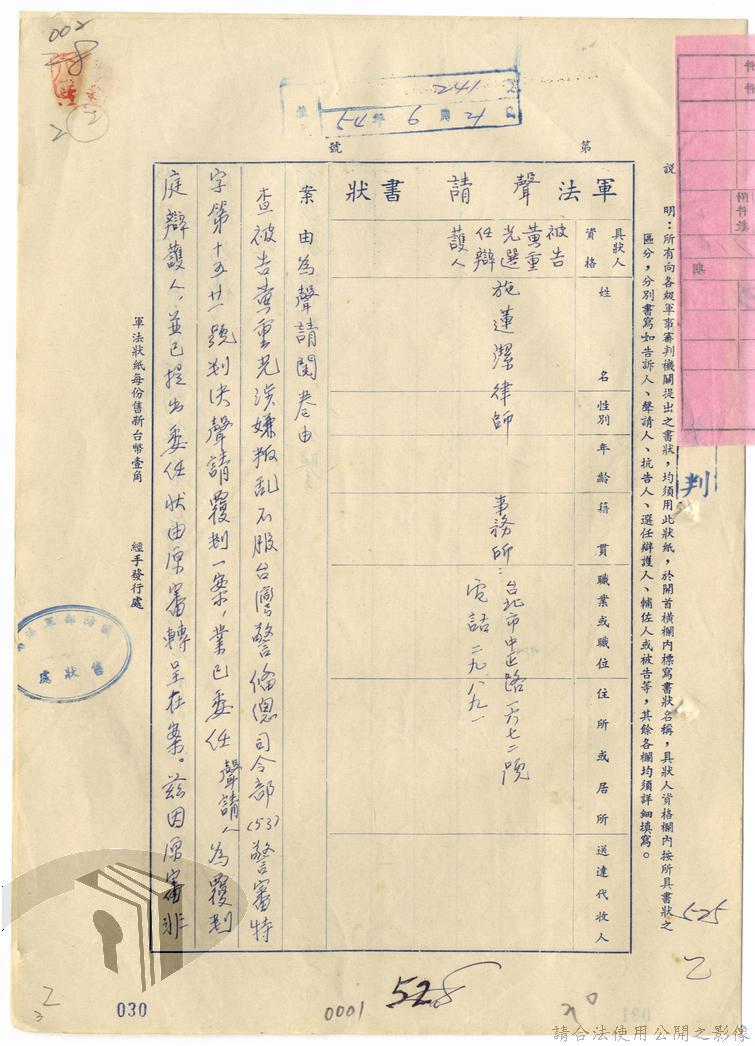 002
28
2
2
241
54 6 2
第
號
說明：所有向各級軍事審判機關提出之書狀，均須用此狀紙，於開首橫欄內標寫書狀名稱，具狀人資格欄內按所具書狀之
區分，分別書寫如告訴人、聲請人、抗告人、選任辯護人、輔佐人或被告等，其餘各欄均須詳細填寫。
判
軍法聲請書狀
具狀人資格
姓名
性別
年齡
籍貫
職業或職位
住所或居所
送達代收人
被告
黃重
光選
任辯
護人
施蓮潔律師
事務所：台北市中正路一六七二號
電話二九八九一
案由為聲請閱卷由
查被告黃重光涉嫌叛乱不服台灣警備總司令部(53)警審特
字第十五廿一號判決聲請覆判一案，業已委任聲請人為覆判
庭辯護人，並已提出委任狀由原審轉呈在案。茲因原審非
軍法狀紙每份售新台幣壹角
經手發行處
售狀處
525
乙
528
0001
030
2
3
請合法使用公開之影像